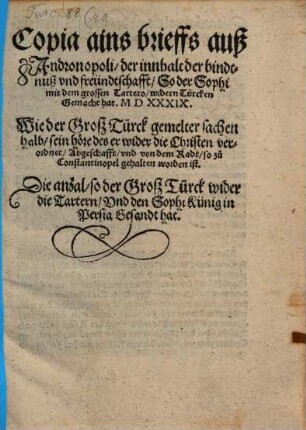 Turc. 88
Copia ains brieffs auß
Andronopoli/ der innhalt der bindt-
nuß vnd freündtschafft/ So der Sophi
mit dem grossen Tartero/ widern Türcken
Gemacht hat. M D XXXIX.
Wie der Groß Türck gemelter sachen
halb/ sein höre des er wider die Christen ver-
ordnet/ Abgeschafft/ vnd von dem Radt/ so zů
Constantinopel gehalten worden ist.
Die anzal/ so der Groß Türck wider
die Tartern/ Vnd den Sophi Künig in
Persia Gesandt hat.